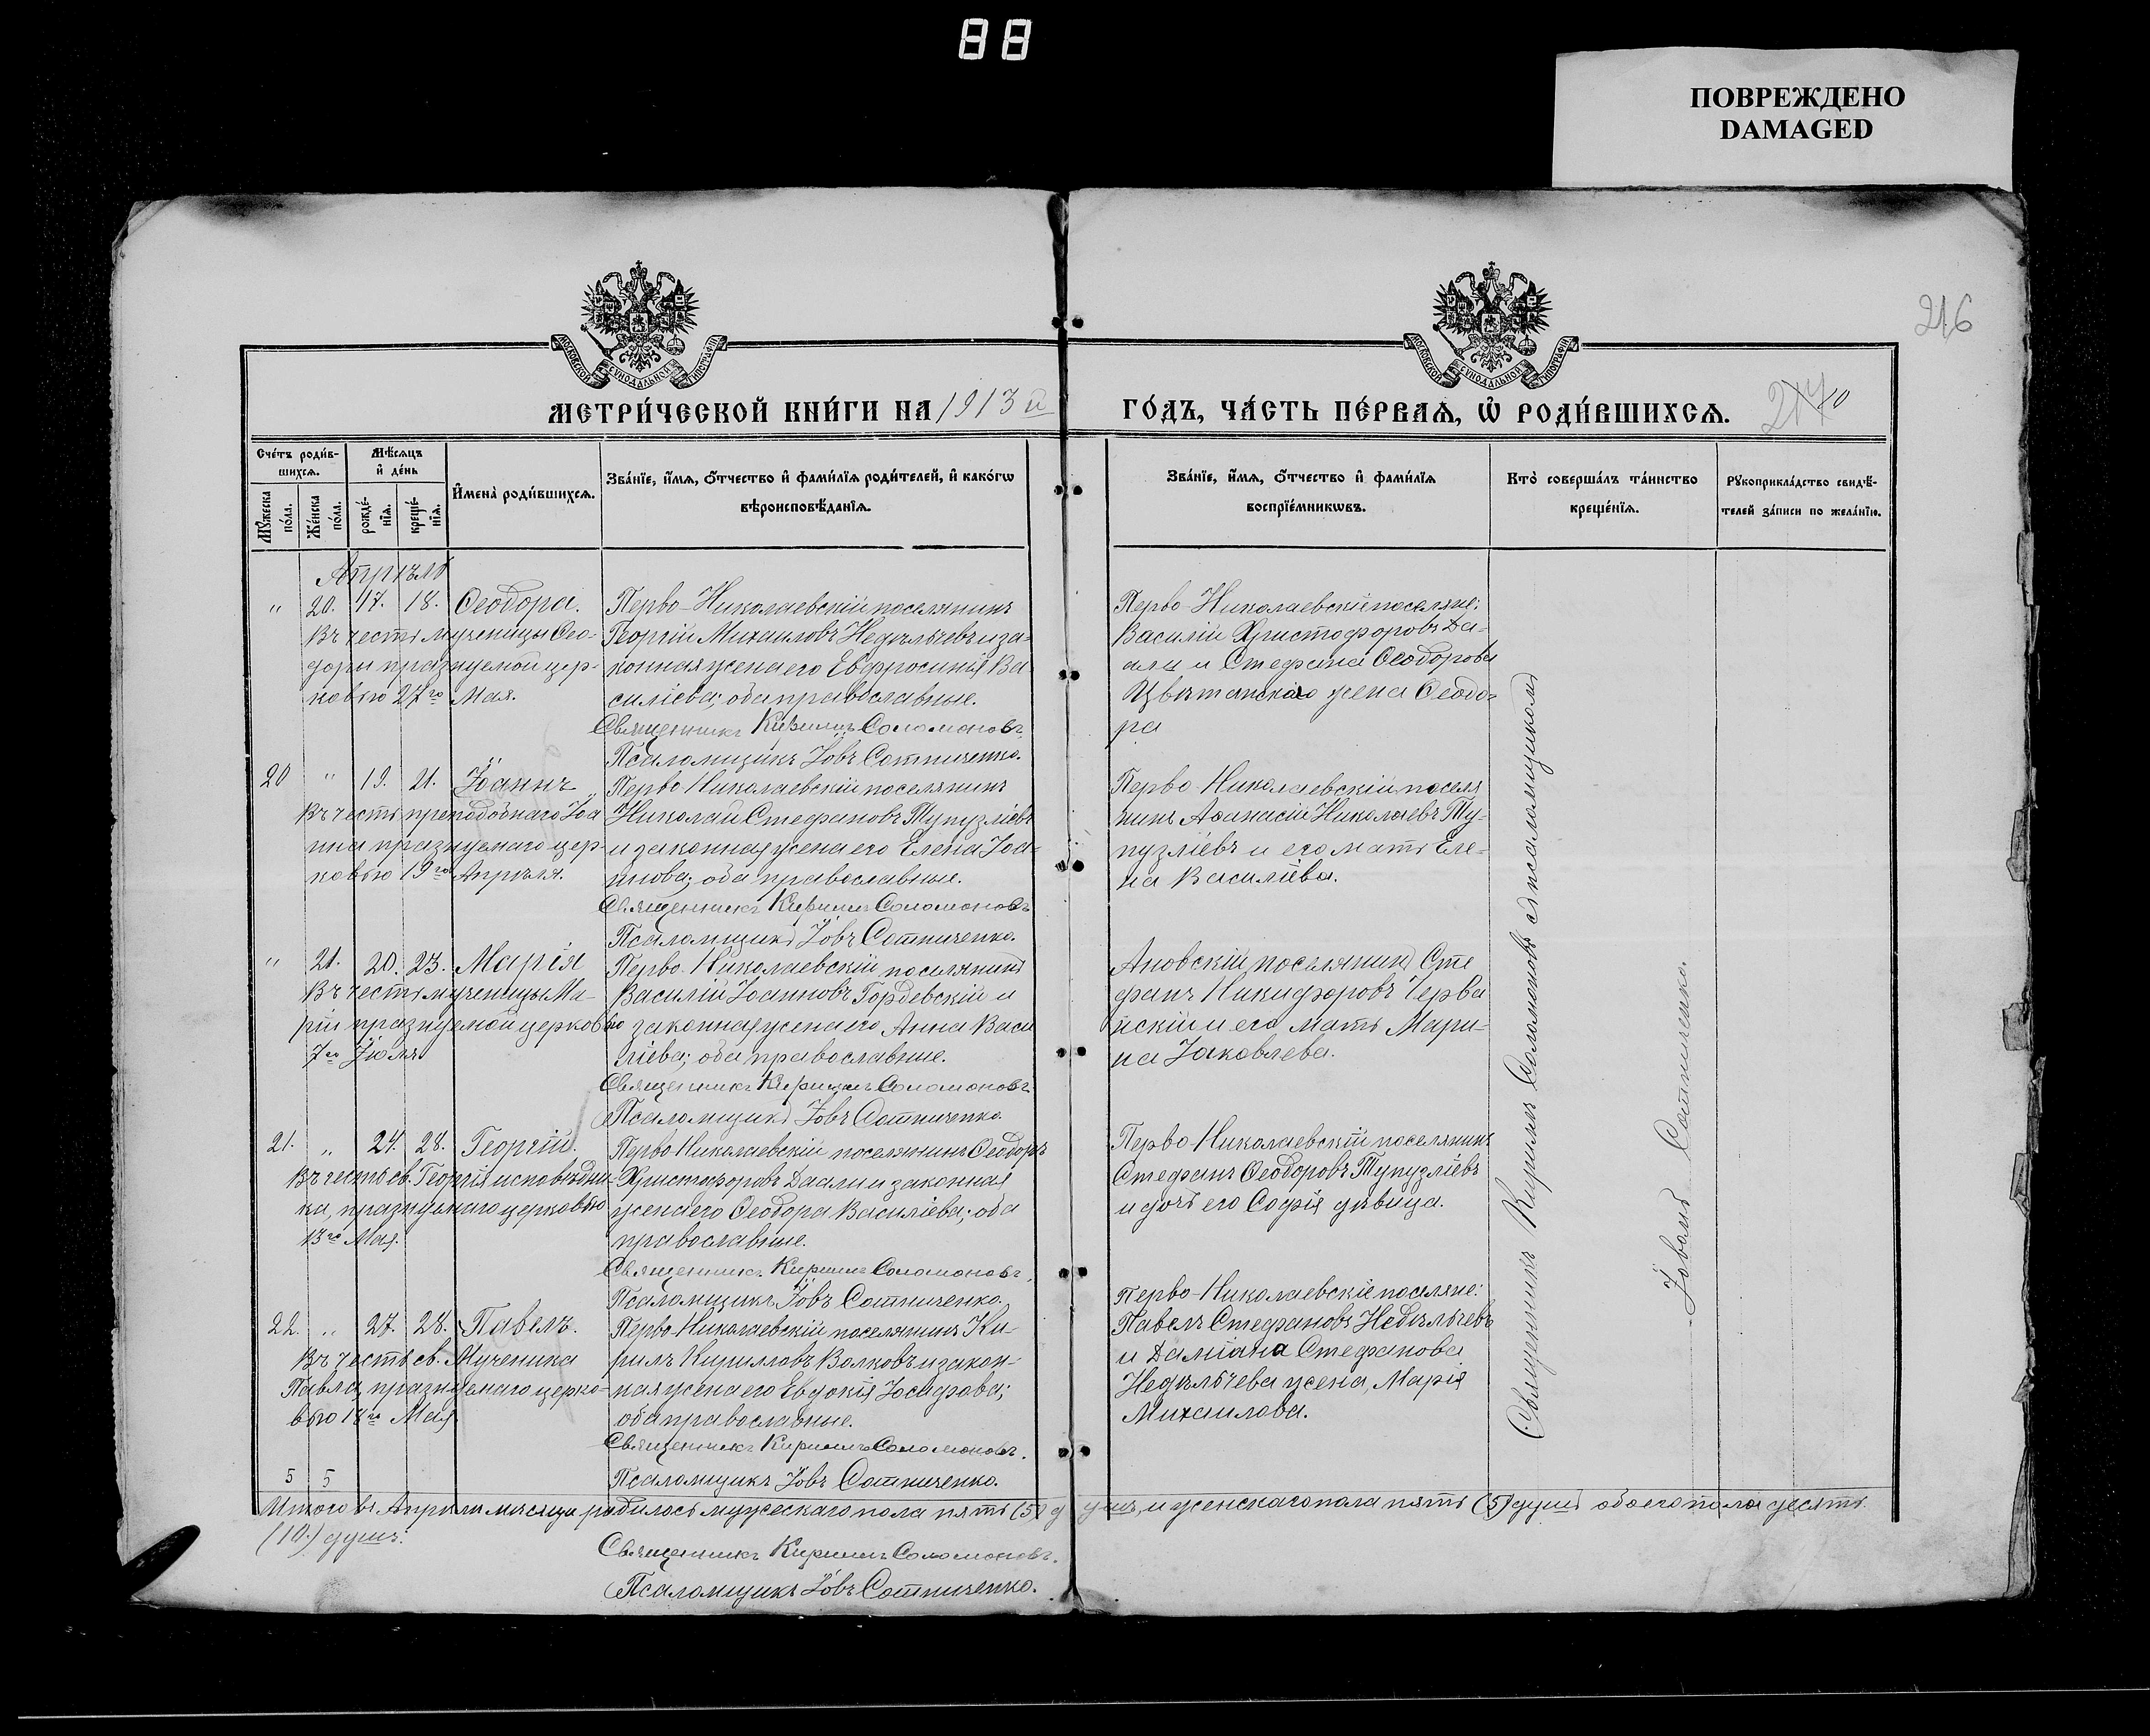 88
ПОВРЕЖДЕНО
DAMAGED
216
МОСКОВСКОЙ СУНОДАЛЬНОЙ ТИПОГРАФІИ
МОСКОВСКОЙ СУНОДАЛЬНОЙ ТИПОГРАФІИ
МЕТРИ́ЧЕСКОЙ КНИ́ГИ НА 1913 й
ГО́ДЪ, ЧА́СТЬ ПЕ́РВАѦ, Ѽ РОДИ́ВШИХСѦ.
Сче́тъ роди́в-
шихсѧ.
Мѣ́сѧцъ
и҆ де́нь
Мꙋ́жеска
по́ла.
Же́нска
по́ла.
рожде́-
нїѧ.
креще́-
нїѧ.
И҆мена̀ роди́вшихсѧ.
Зва́нїе, и҆́мѧ, ѻ҆́тчество и҆ фами́лїѧ роди́телей, и҆ како́гѡ
вѣроисповѣ́данїѧ.
Зва́нїе, и҆́мѧ, ѻ҆́тчество и҆ фами́лїѧ
воспрїе́мникѡвъ.
Кто̀ соверша́лъ та́инство
креще́нїѧ.
Рꙋкоприкла́дство свидѣ́-
телей за́писи по жела́нїю.
Апрѣль
" 20. 17. 18. Ѳеодора.
Въ честь мученицы Ѳео-
доры празнуемой цер-
ковью 27го Мая.
Перво-Николаевскій поселянинъ
Георгій Михаиловъ Недѣльчевъ и за-
конная жена его Евфросинія Ва-
силіева; оба православные.
Священникъ Кириллъ Соломоновъ.
Псаломщикъ Іовъ Сотниченко.
Перво-Николаевскіе поселяне:
Василій Христофоровъ Да-
али и Стефана Ѳеодорова
Цвѣтанскаго жена Ѳеодо-
ра
20 " 19. 21. Іоаннъ
Въ честь преподобнаго Іоа
нна празнуемаго цер-
ковью 19го Апрѣля.
Перво Николаевскій поселянинъ
Николай Стефановъ Тупузліевъ
и законная жена его Елена Іоа-
ннова; оба православные.
Священникъ Кириллъ Соломоновъ
Псаломщикъ Іовъ Сотниченко.
Перво Николаевскій поселя
нинъ Аѳанасій Николаевъ Ту-
пузліевъ и его мать Еле-
на Василіева.
" 21. 20. 23. Марія
Въ честь мученицы Ма-
ріи празнуемой церковью
7го Іюля
Перво-Николаевскій поселянинъ
Василій Іоанновъ Гордевскій и
законная жена его Анна Васи
ліева; оба православные.
Священникъ Кириллъ Соломоновъ.
Псаломщикъ Іовъ Сотниченко.
Ановскій поселянинъ Сте
фанъ Никифоровъ Черва
нскій и его мать Мари-
на Іаковлева.
21. " 24. 28. Георгій.
Въ честь св. Георгія исповѣдни-
ка, празнуемаго церковью
13го Мая.
Перво Николаевскій поселянинъ Ѳеодоръ
Христофоровъ Даали и законная
жена его Ѳеодора Василіева; оба
православные.
Священникъ Кириллъ Соломоновъ.
Псаломщикъ Іовъ Сотниченко.
Перво-Николаевскій поселянинъ
Стефанъ Ѳеодоровъ Тупузліевъ
и дочь его Софія дѣвица.
22. " 27. 28. Павелъ.
Въ честь св. Мученика
Павла, празнуемаго церко-
вью 18го Мая
Перво-Николаевскій поселянинъ Ки-
рилъ Кирилловъ Волковъ и закон-
ная жена его Евдокія Іосифова;
оба православные.
Священникъ Кириллъ Соломоновъ.
Псаломщикъ Іовъ Сотниченко.
Перво-Николаевскіе поселяне:
Павелъ Стефановъ Недѣльчевъ
и Даміана Стефанова
Недѣльчева жена, Марія
Михаилова.
Священникъ Кириллъ Соломоновъ съ псаломщикомъ
Іовомъ Сотниченко.
5 5
Итого въ Апрѣлѣ мѣсяцѣ родилось мужескаго пола пять (5) душъ, и женскаго пола пять (5) душъ обоего пола десять
(10) душъ.
Священникъ Кириллъ Соломоновъ.
Псаломщикъ Іовъ Сотниченко.